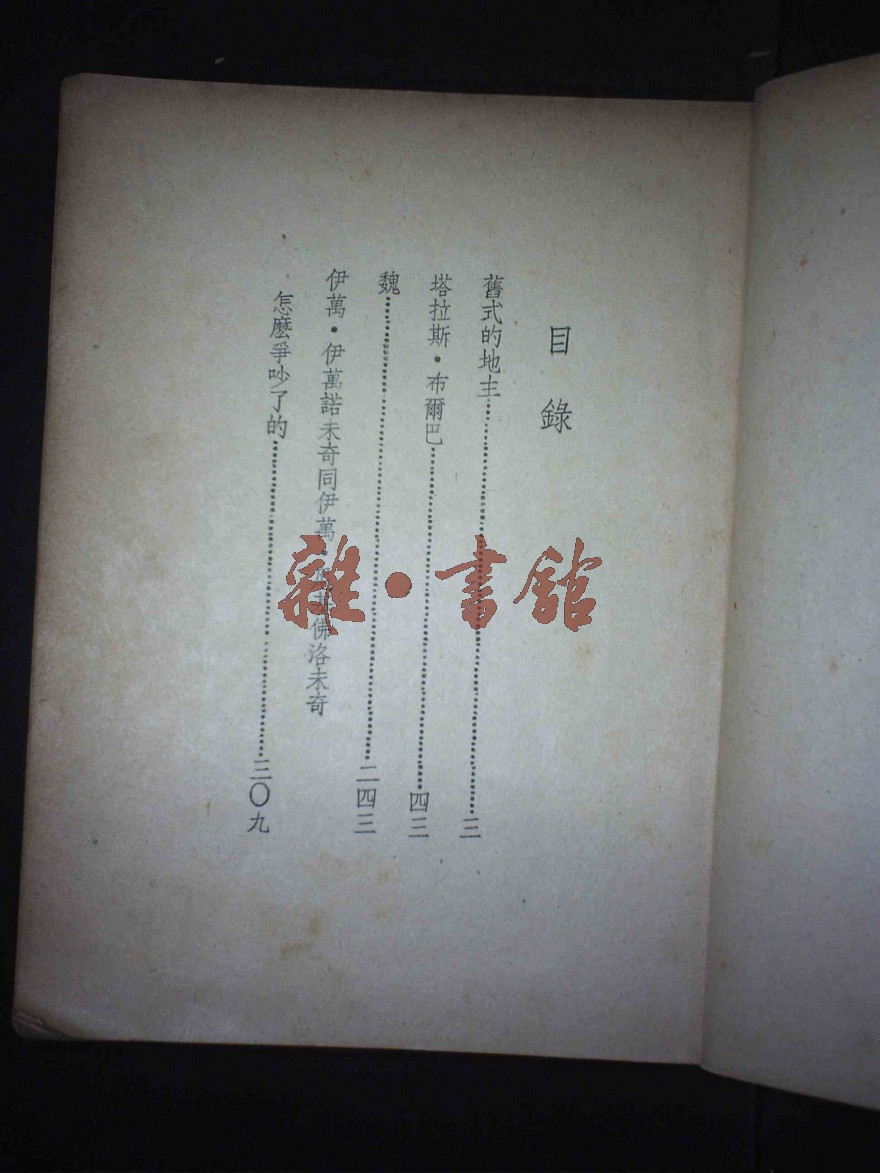 目錄
舊式的地主 三
塔拉斯·布爾巴 四三
魏 二四三
伊萬·伊萬諾未奇同伊萬 佛洛未奇
怎麼爭吵了的 三〇九
雜·書館